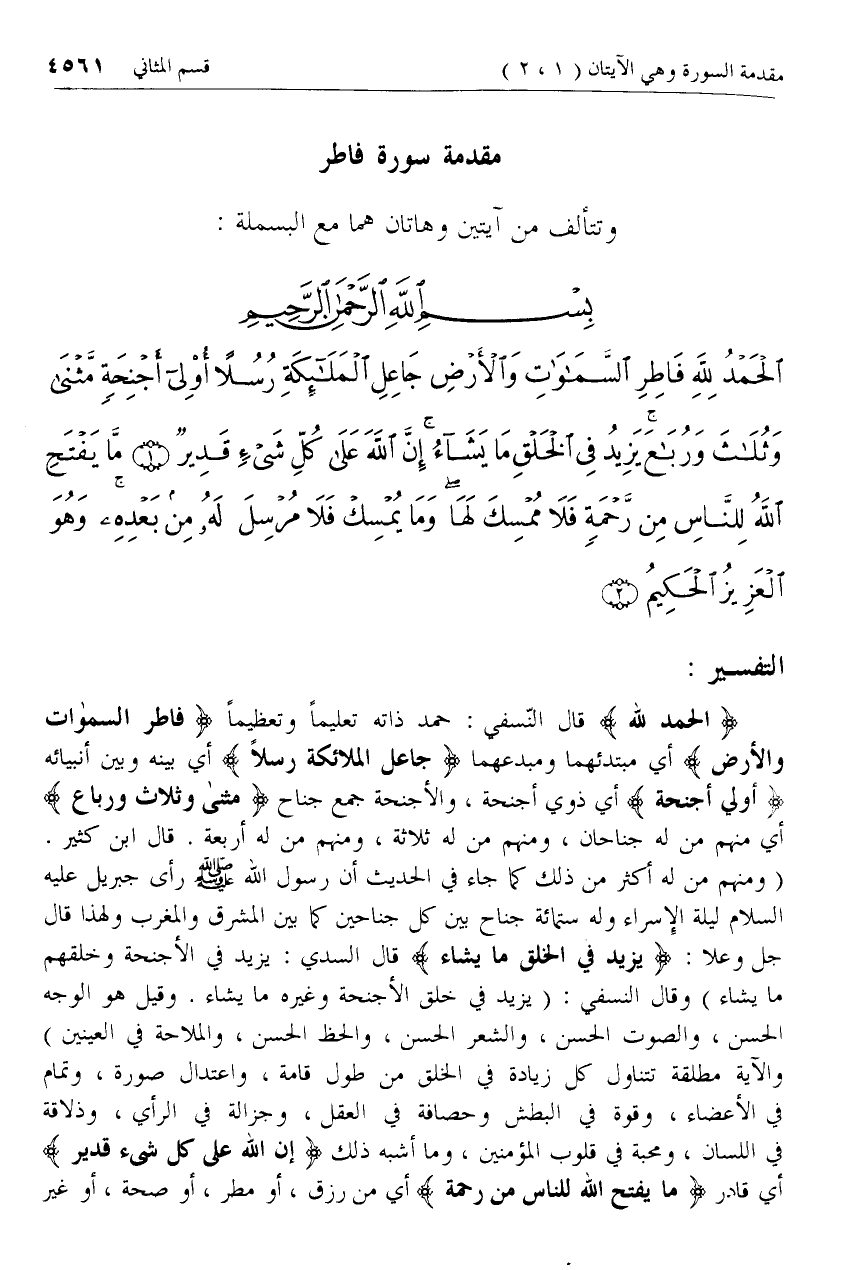 مقدمة السورة وهي الآيتان ( ١ ، ٢ ) قسم المثاني ٤٥٦١
مقدمة سورة فاطر
وتتألف من آيتين وهاتان هما مع البسملة :
بِسْمِ ٱللَّهِ ٱلرَّحْمَٰنِ ٱلرَّحِيمِ
ٱلْحَمْدُ لِلَّهِ فَاطِرِ ٱلسَّمَٰوَٰتِ وَٱلْأَرْضِ جَاعِلِ ٱلْمَلَٰٓئِكَةِ رُسُلًا أُو۟لِىٓ أَجْنِحَةٍ مَّثْنَىٰ
وَثُلَٰثَ وَرُبَٰعَ ۚ يَزِيدُ فِى ٱلْخَلْقِ مَا يَشَآءُ ۚ إِنَّ ٱللَّهَ عَلَىٰ كُلِّ شَىْءٍ قَدِيرٌ ١ مَّا يَفْتَحِ
ٱللَّهُ لِلنَّاسِ مِن رَّحْمَةٍ فَلَا مُمْسِكَ لَهَا ۖ وَمَا يُمْسِكْ فَلَا مُرْسِلَ لَهُۥ مِنۢ بَعْدِهِۦ ۚ وَهُوَ
ٱلْعَزِيزُ ٱلْحَكِيمُ ٢
التفسير :
﴿ الحمد لله ﴾ قال النّسفي : حمد ذاته تعليماً وتعظيماً ﴿ فاطر السمٰوات
والأرض ﴾ أي مبتدئهما ومبدعهما ﴿ جاعل الملائكة رسلاً ﴾ أي بينه وبين أنبيائه
﴿ أولي أجنحة ﴾ أي ذوي أجنحة ، والأجنحة جمع جناح ﴿ مثنىٰ وثلاث ورباع ﴾
أي منهم من له جناحان ، ومنهم من له ثلاثة ، ومنهم من له أربعة . قال ابن كثير .
( ومنهم من له أكثر من ذلك كما جاء في الحديث أن رسول الله ﷺ رأى جبريل عليه
السلام ليلة الإسراء وله ستمائة جناح بين كل جناحين كما بين المشرق والمغرب ولهذا قال
جل وعلا : ﴿ يزيد في الخلق ما يشاء ﴾ قال السدي : يزيد في الأجنحة وخلقهم
ما يشاء ) وقال النسفي : ( يزيد في خلق الأجنحة وغيره ما يشاء . وقيل هو الوجه
الحسن ، والصوت الحسن ، والشعر الحسن ، والحظ الحسن ، والملاحة في العينين )
والآية مطلقة تتناول كل زيادة في الخلق من طول قامة ، واعتدال صورة ، وتمام
في الأعضاء ، وقوة في البطش وحصافة في العقل ، وجزالة في الرأي ، وذلاقة
في اللسان ، ومحبة في قلوب المؤمنين ، وما أشبه ذلك ﴿ إن الله على كل شيء قدير ﴾
أي قادر ﴿ ما يفتح الله للناس من رحمة ﴾ أي من رزق ، أو مطر ، أو صحة ، أو غير